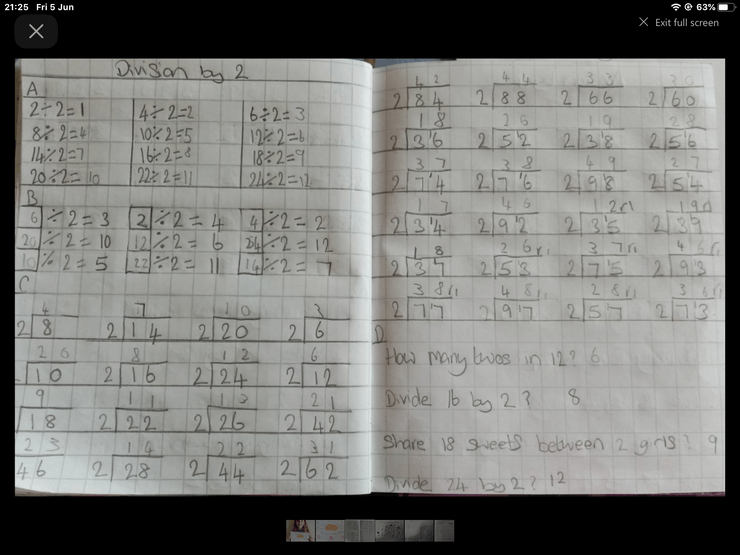 21:25 Fri 5 Jun
63%
Exit full screen
Division by 2
A
2÷2=1 4÷2=2 6÷2=3
8÷2=4 10÷2=5 12÷2=6
14÷2=7 16÷2=8 18÷2=9
20÷2=10 22÷2=11 24÷2=12
B
6 ÷2=3 ÷2=4 4 ÷2=2
20 ÷2=10 12 ÷2=6 24 ÷2=12
10 ÷2=5 22 ÷2=11 14 ÷2=7
C
4 7 10 3
2 8 2 14 2 20 2 6
8 12 6
10 2 16 2 24 2 12
9 11 13 21
18 2 22 2 26 2 42
23 14 22 31
46 2 28 2 44 2 62
42 44 33 30
2 84 2 88 2 66 2 60
18 26 19 28
2 36 2 52 2 38 2 56
37 38 49 27
2 74 2 76 2 98 2 54
17 46 12r1 19r1
2 34 2 92 2 35 2 39
18 26r1 37r1 46r1
2 37 2 53 2 75 2 93
38r1 48r1 28r1 36r1
2 77 2 97 2 57 2 73
D
How many twos in 12? 6
Divide 16 by 2? 8
Share 18 sweets between 2 girls? 9
Divide 24 by 2? 12